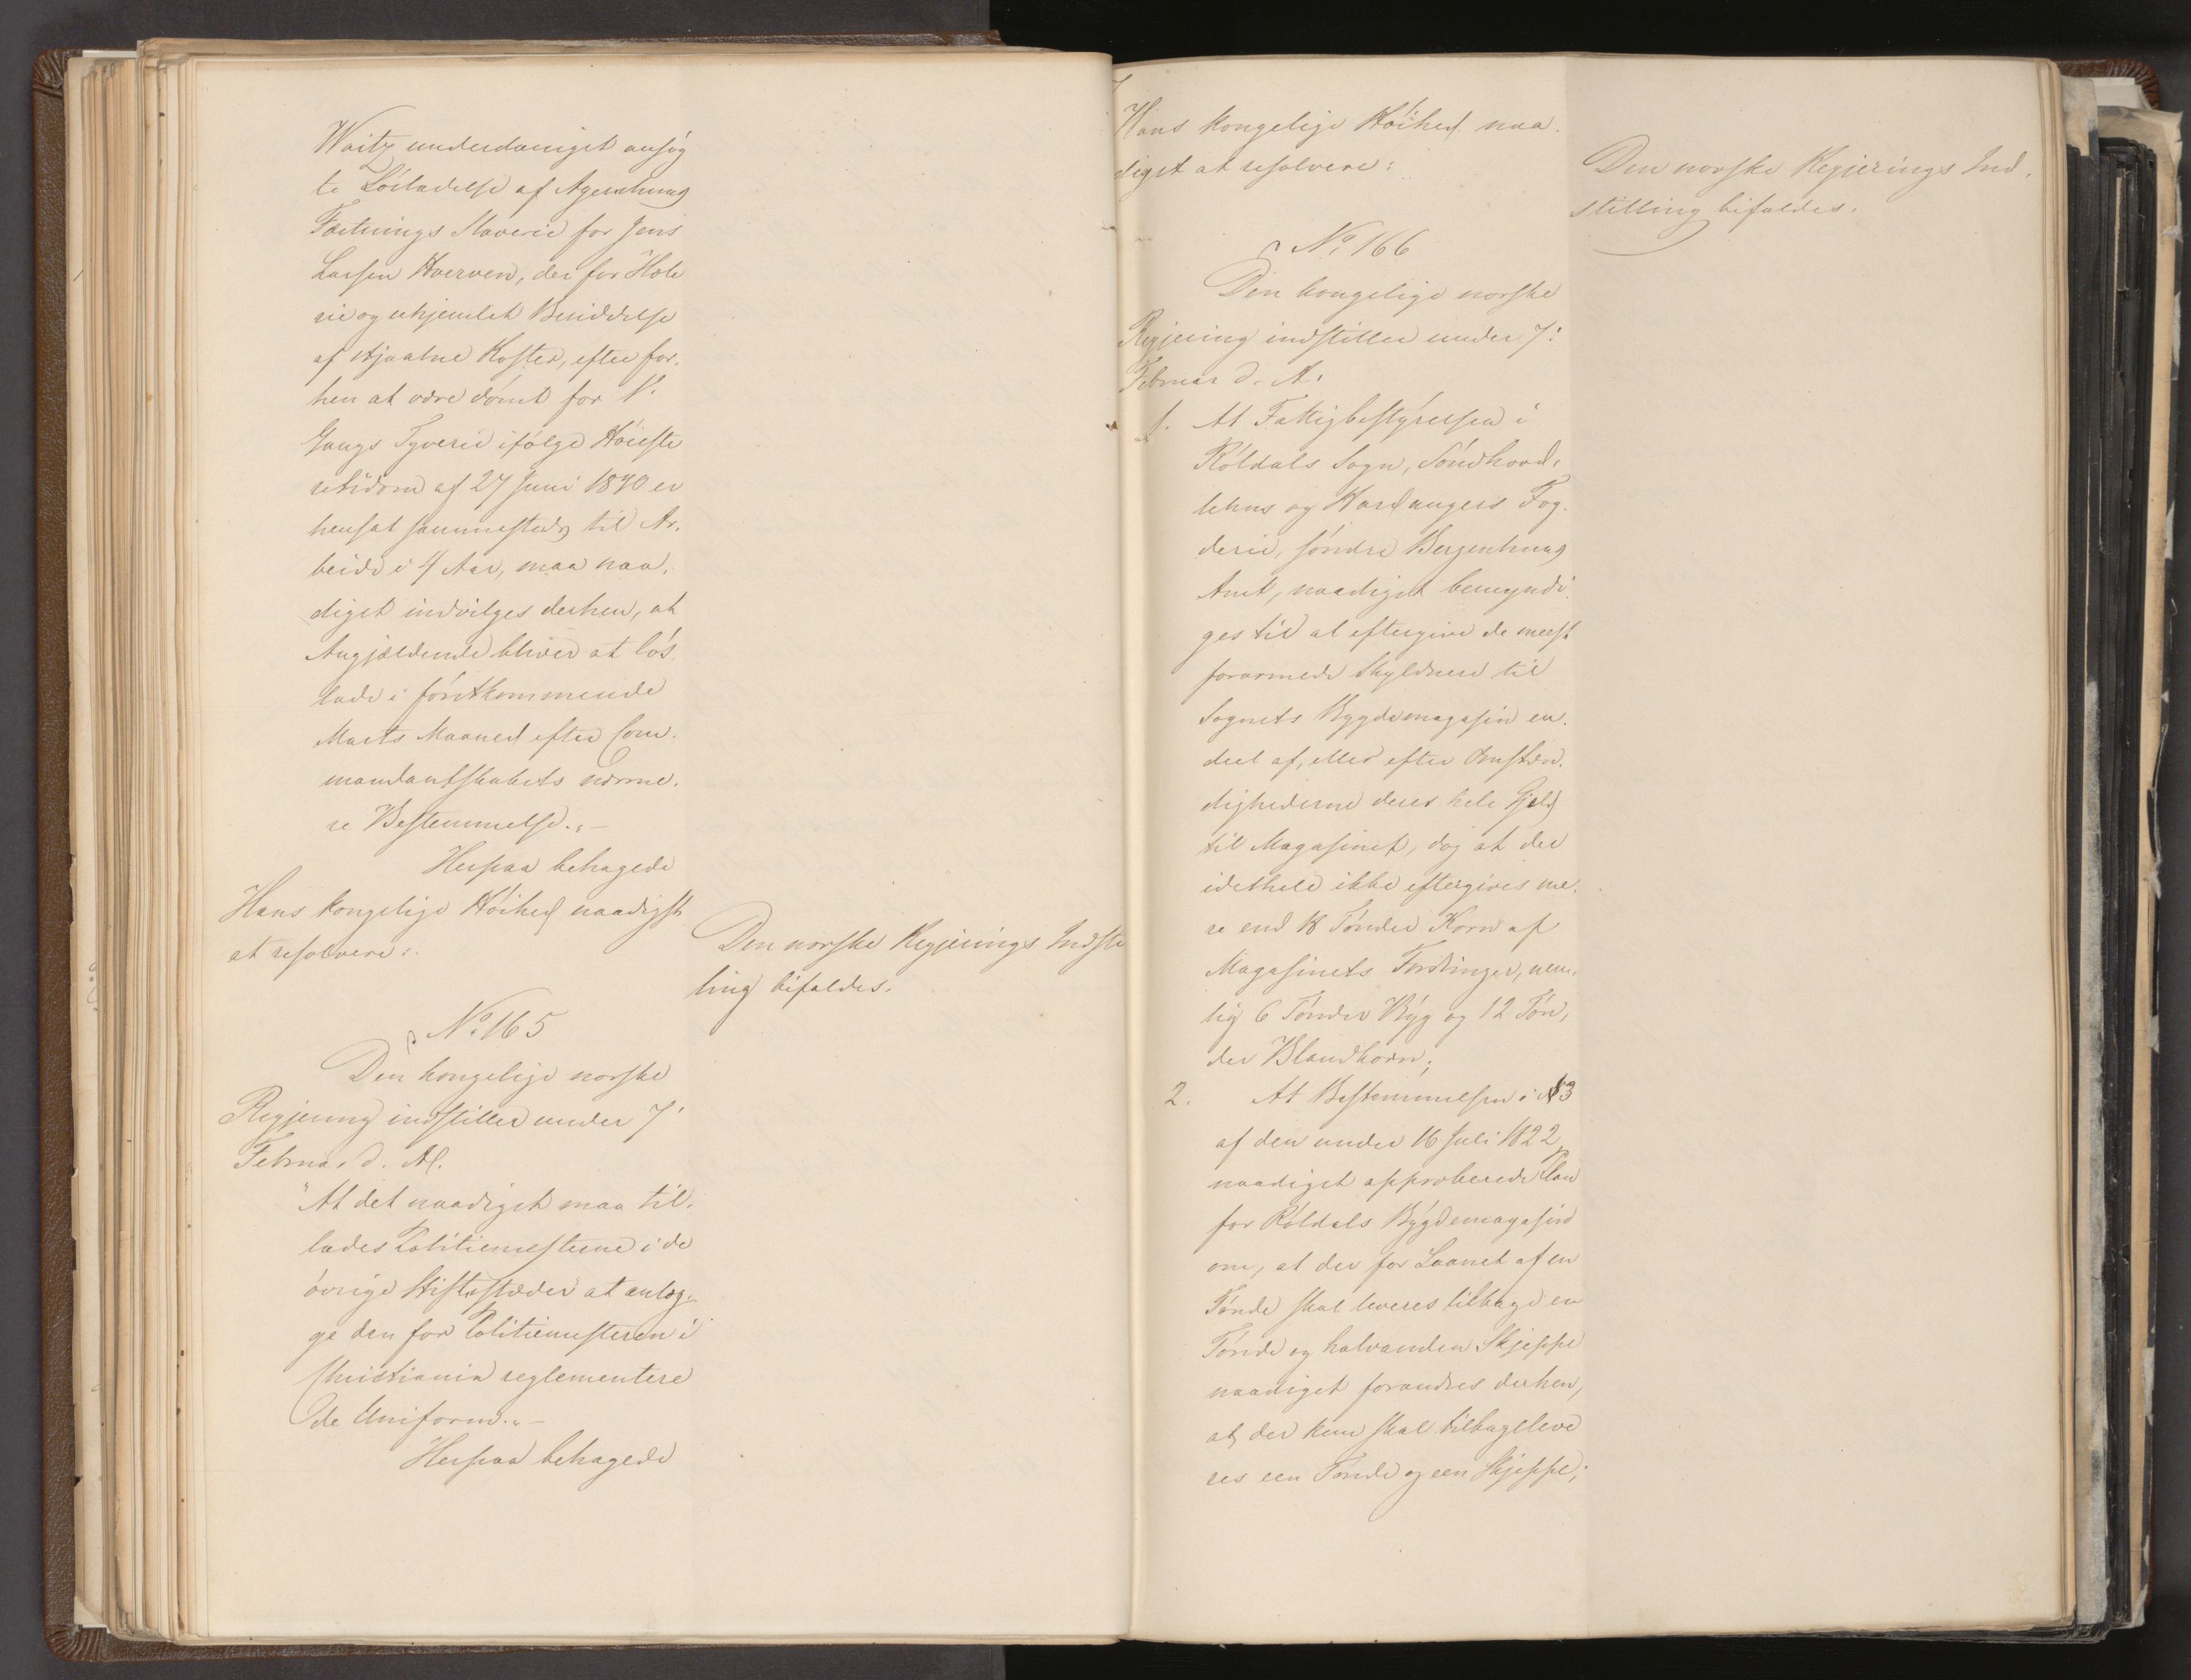 Waitz underdanigst ansøg
te Løsladelse af Agershuus
Fæstnings Slaverie for Jens
Larsen Hverven, der for Hæle
rie og uhjemlet Besiddelse
af stjaalne Koster, efter for-
hen at være dømt for 1.
Gangs Tyverie ifølge Høieste
retsdom af 27 Juni 1840 er
hensat sammesteds til Ar-
beide i 4 Aar, maa naa-
digst indvilges derhen, at
Angjældende bliver at løs-
lade i førstkommende
Marts Maaned efter Com-
mandantskabets nærme-
re Bestemmelse."-
Herpaa behagede
Hans kongelige Høihed naadigst
at resolvere:
Den norske Regjerings Indstil
ling bifaldes.
No. 165
Den kongelige norske
Regjering indstiller under 7.
Februar d. A.
"At det naadigst maa til-
lades Politiemesterne i de
øvrige Stiftsstæder at anlæg-
ge den for Politiemesteren i
Christiania reglementere
de Uniform."-
Herpaa behagede
Hans kongelige Høihed naa-
digst at resolvere:
Den norske Regjerings Ind-
stilling bifaldes.
No. 166
Den kongelige norske
Regjering indstiller under 7.
Februar d. A.
1. At Fattigbestyrelsen i
Røldals Sogn, Søndhord-
lehns og Hardangers Fog-
derie, søndre Bergenhuus
Amt, naadigst bemyndi-
ges til at eftergive de meest
forarmede Skyldnere til
Sognets Bygdemagasin en
deel af, eller efter Omstæn-
dighederne deres hele Gjeld
til Magasinet, dog at der
idethele ikke eftergives me-
re end 18 Tønder Korn af
Magasinets Fordringer, nem-
lig 6 Tønder Byg og 12 Tøn-
der Blandkorn;
2. At Bestemmelsen i §3
af den under 16 Juli 1822
naadigst approberede Plan
for Røldals Bygdemagasin
om, at der for Laanet af en
Tønde skal leveres tilbage en
Tønde og halvanden Skjeppe
naadigst forandres derhen,
at der kun skal tilbageleve
res een Tønde og een Skjeppe;